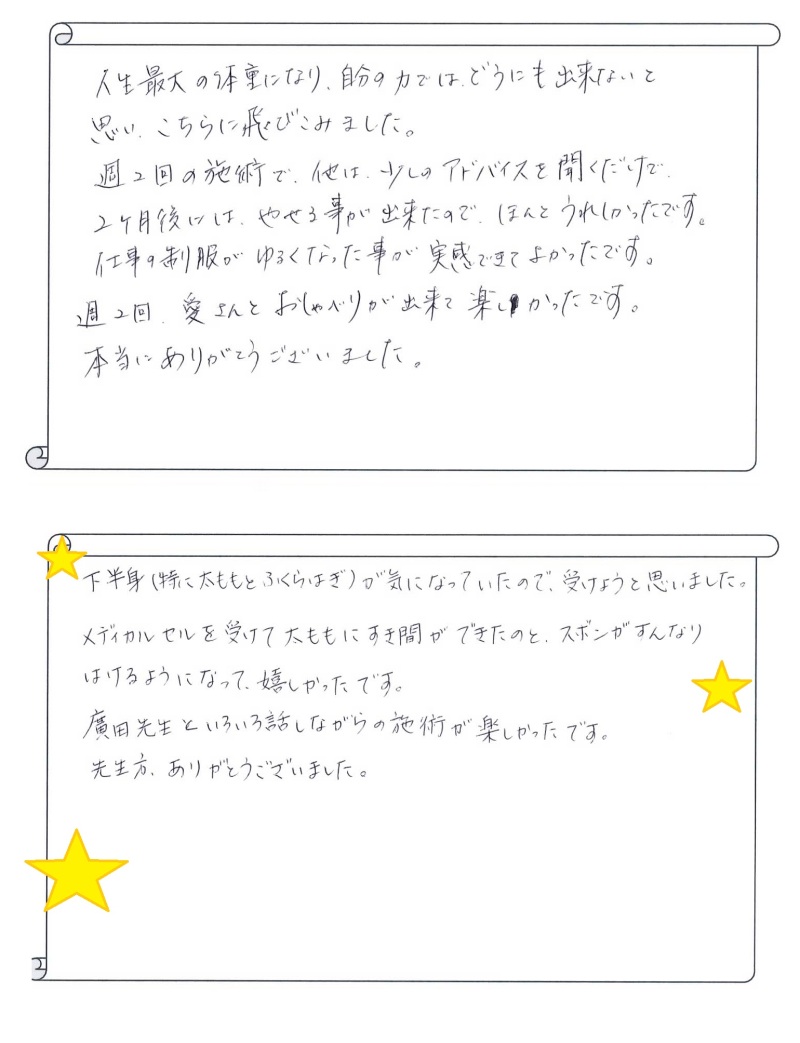 人生最大の体重になり、自分の力では、どうにも出来ないと
思い、こちらに飛びこみました。
週2回の施術で、他は、少しのアドバイスを聞くだけで、
2ヶ月後には、やせる事が出来たので、ほんとうれしかったです。
仕事の制服がゆるくなった事が実感できてよかったです。
週2回、愛さんとおしゃべりが出来て楽しかったです。
本当にありがとうございました。
下半身(特に太ももとふくらはぎ)が気になっていたので、受けようと思いました。
メディカルセルを受けて太ももにすき間ができたのと、ズボンがすんなり
はけるようになって、嬉しかったです。
廣田先生といろいろ話しながらの施術が楽しかったです。
先生方、ありがとうございました。